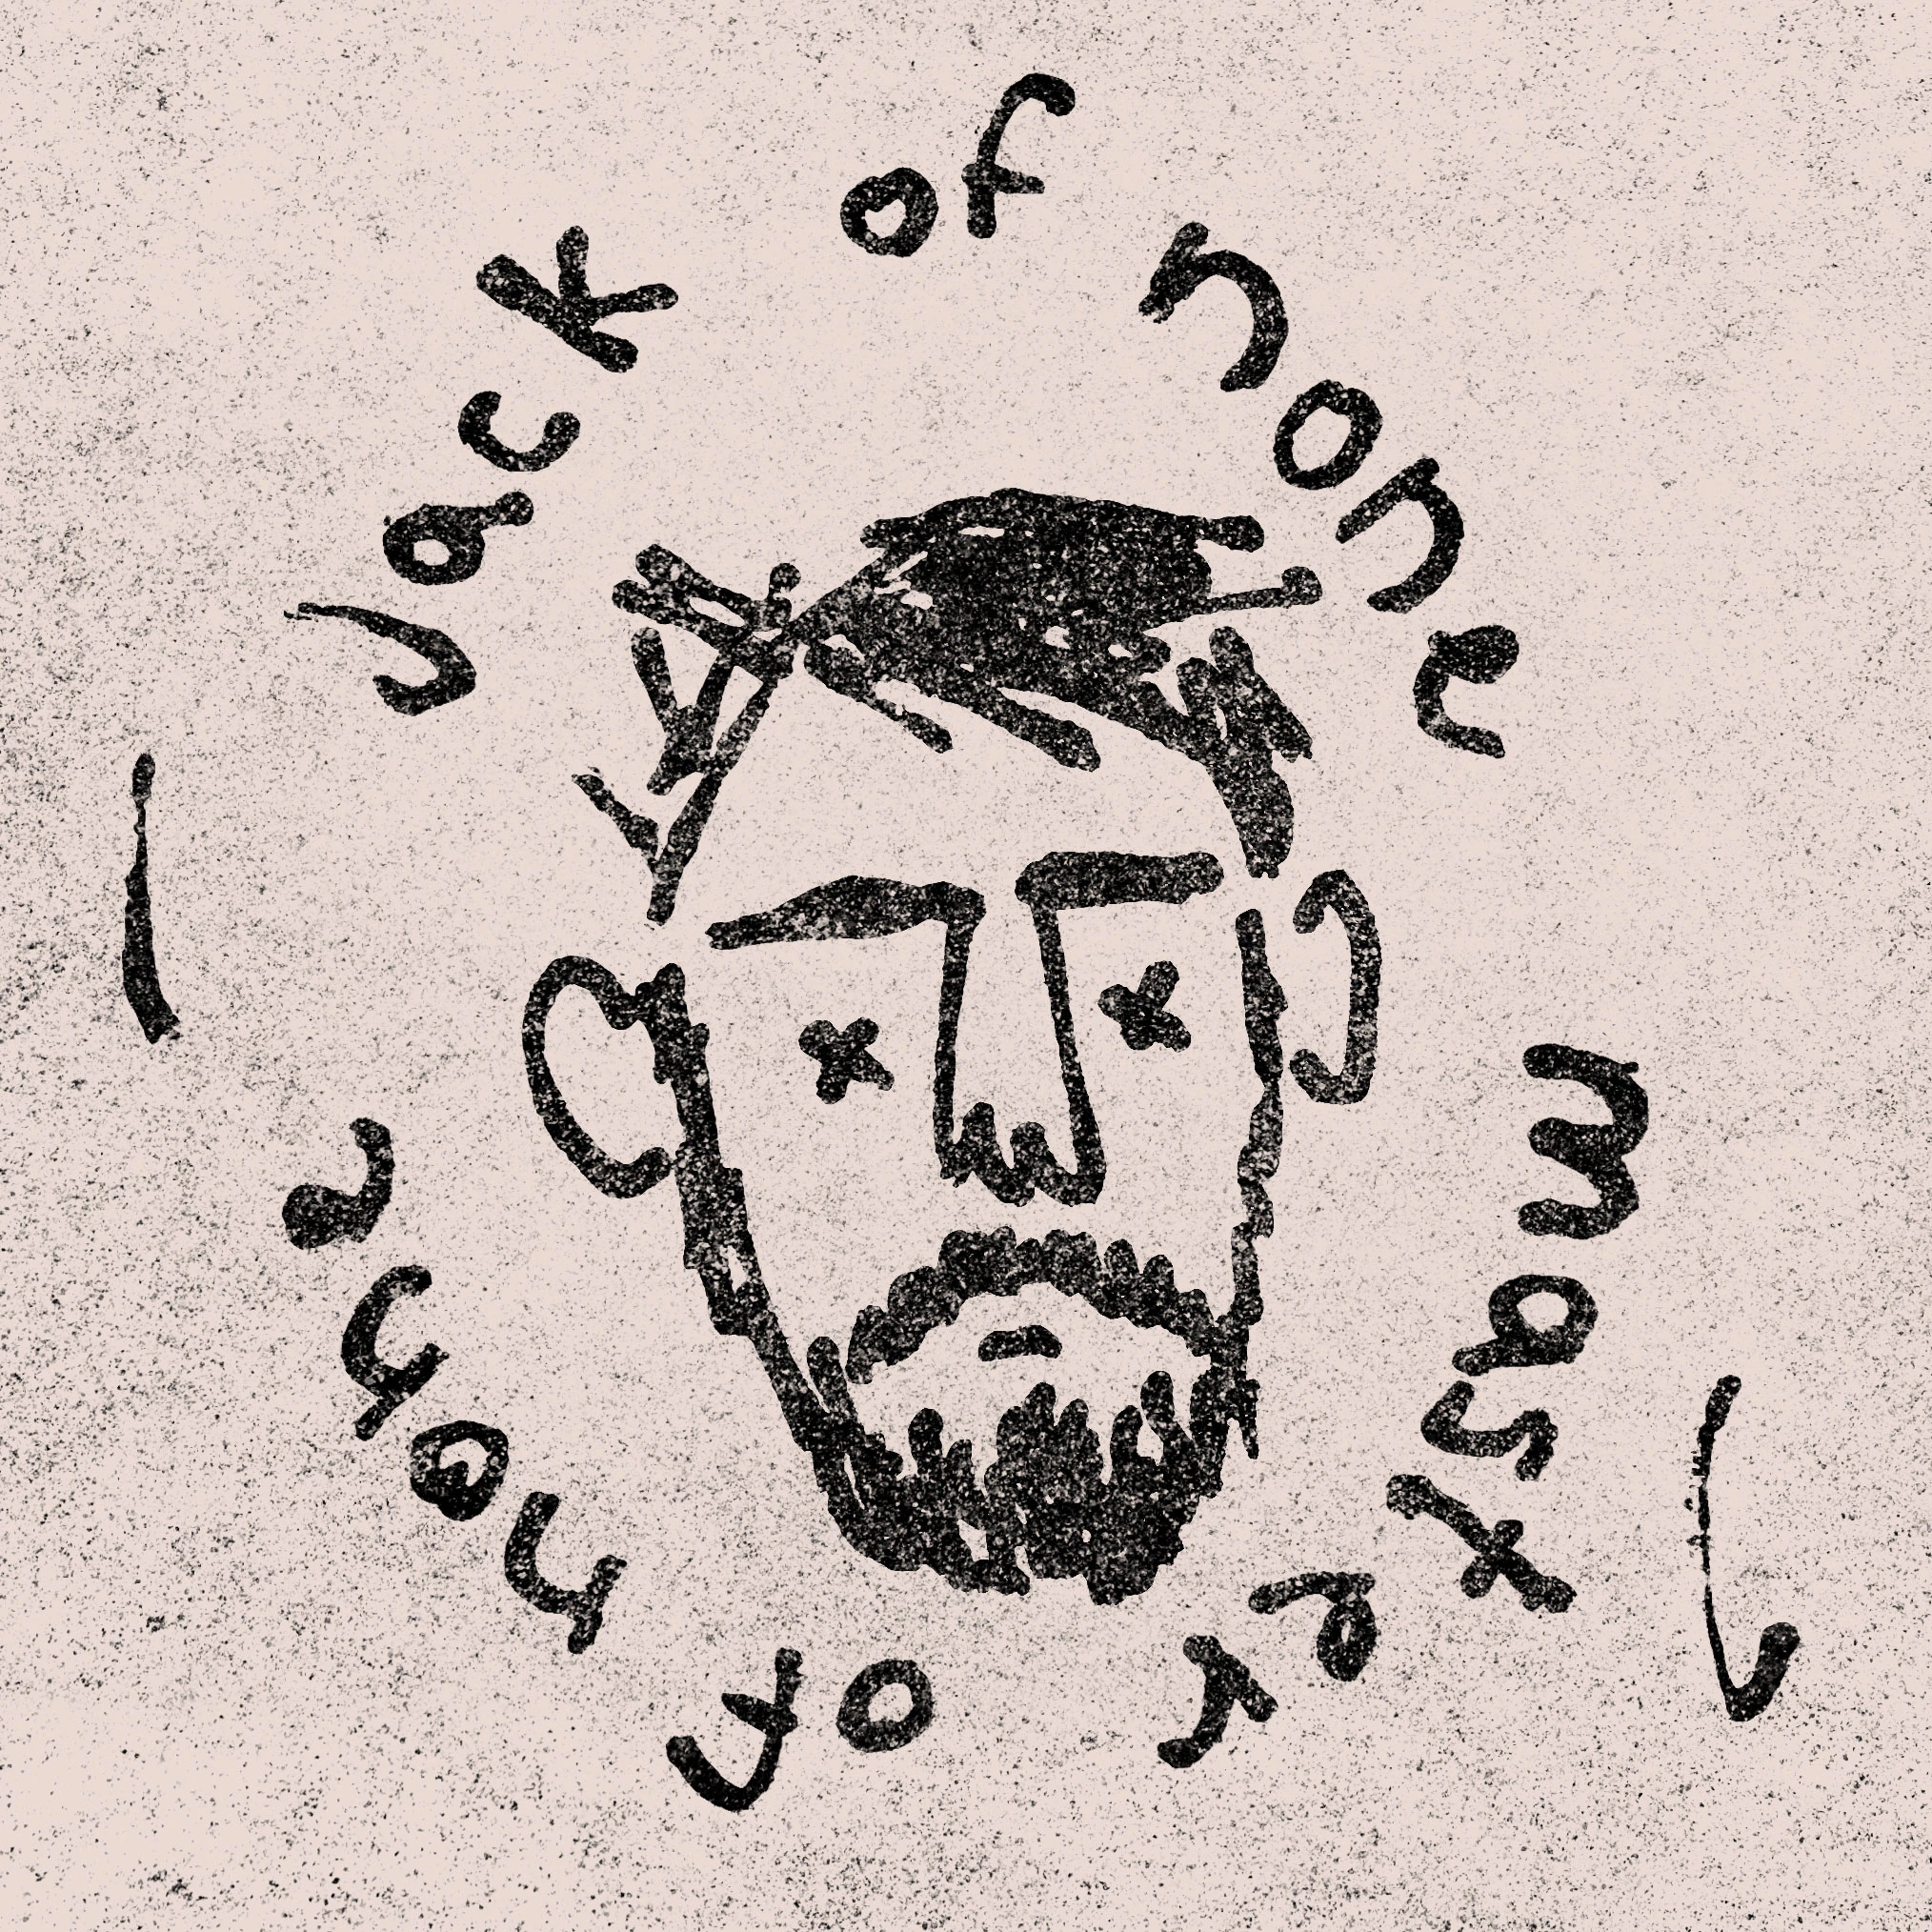 Jack of none
master of none